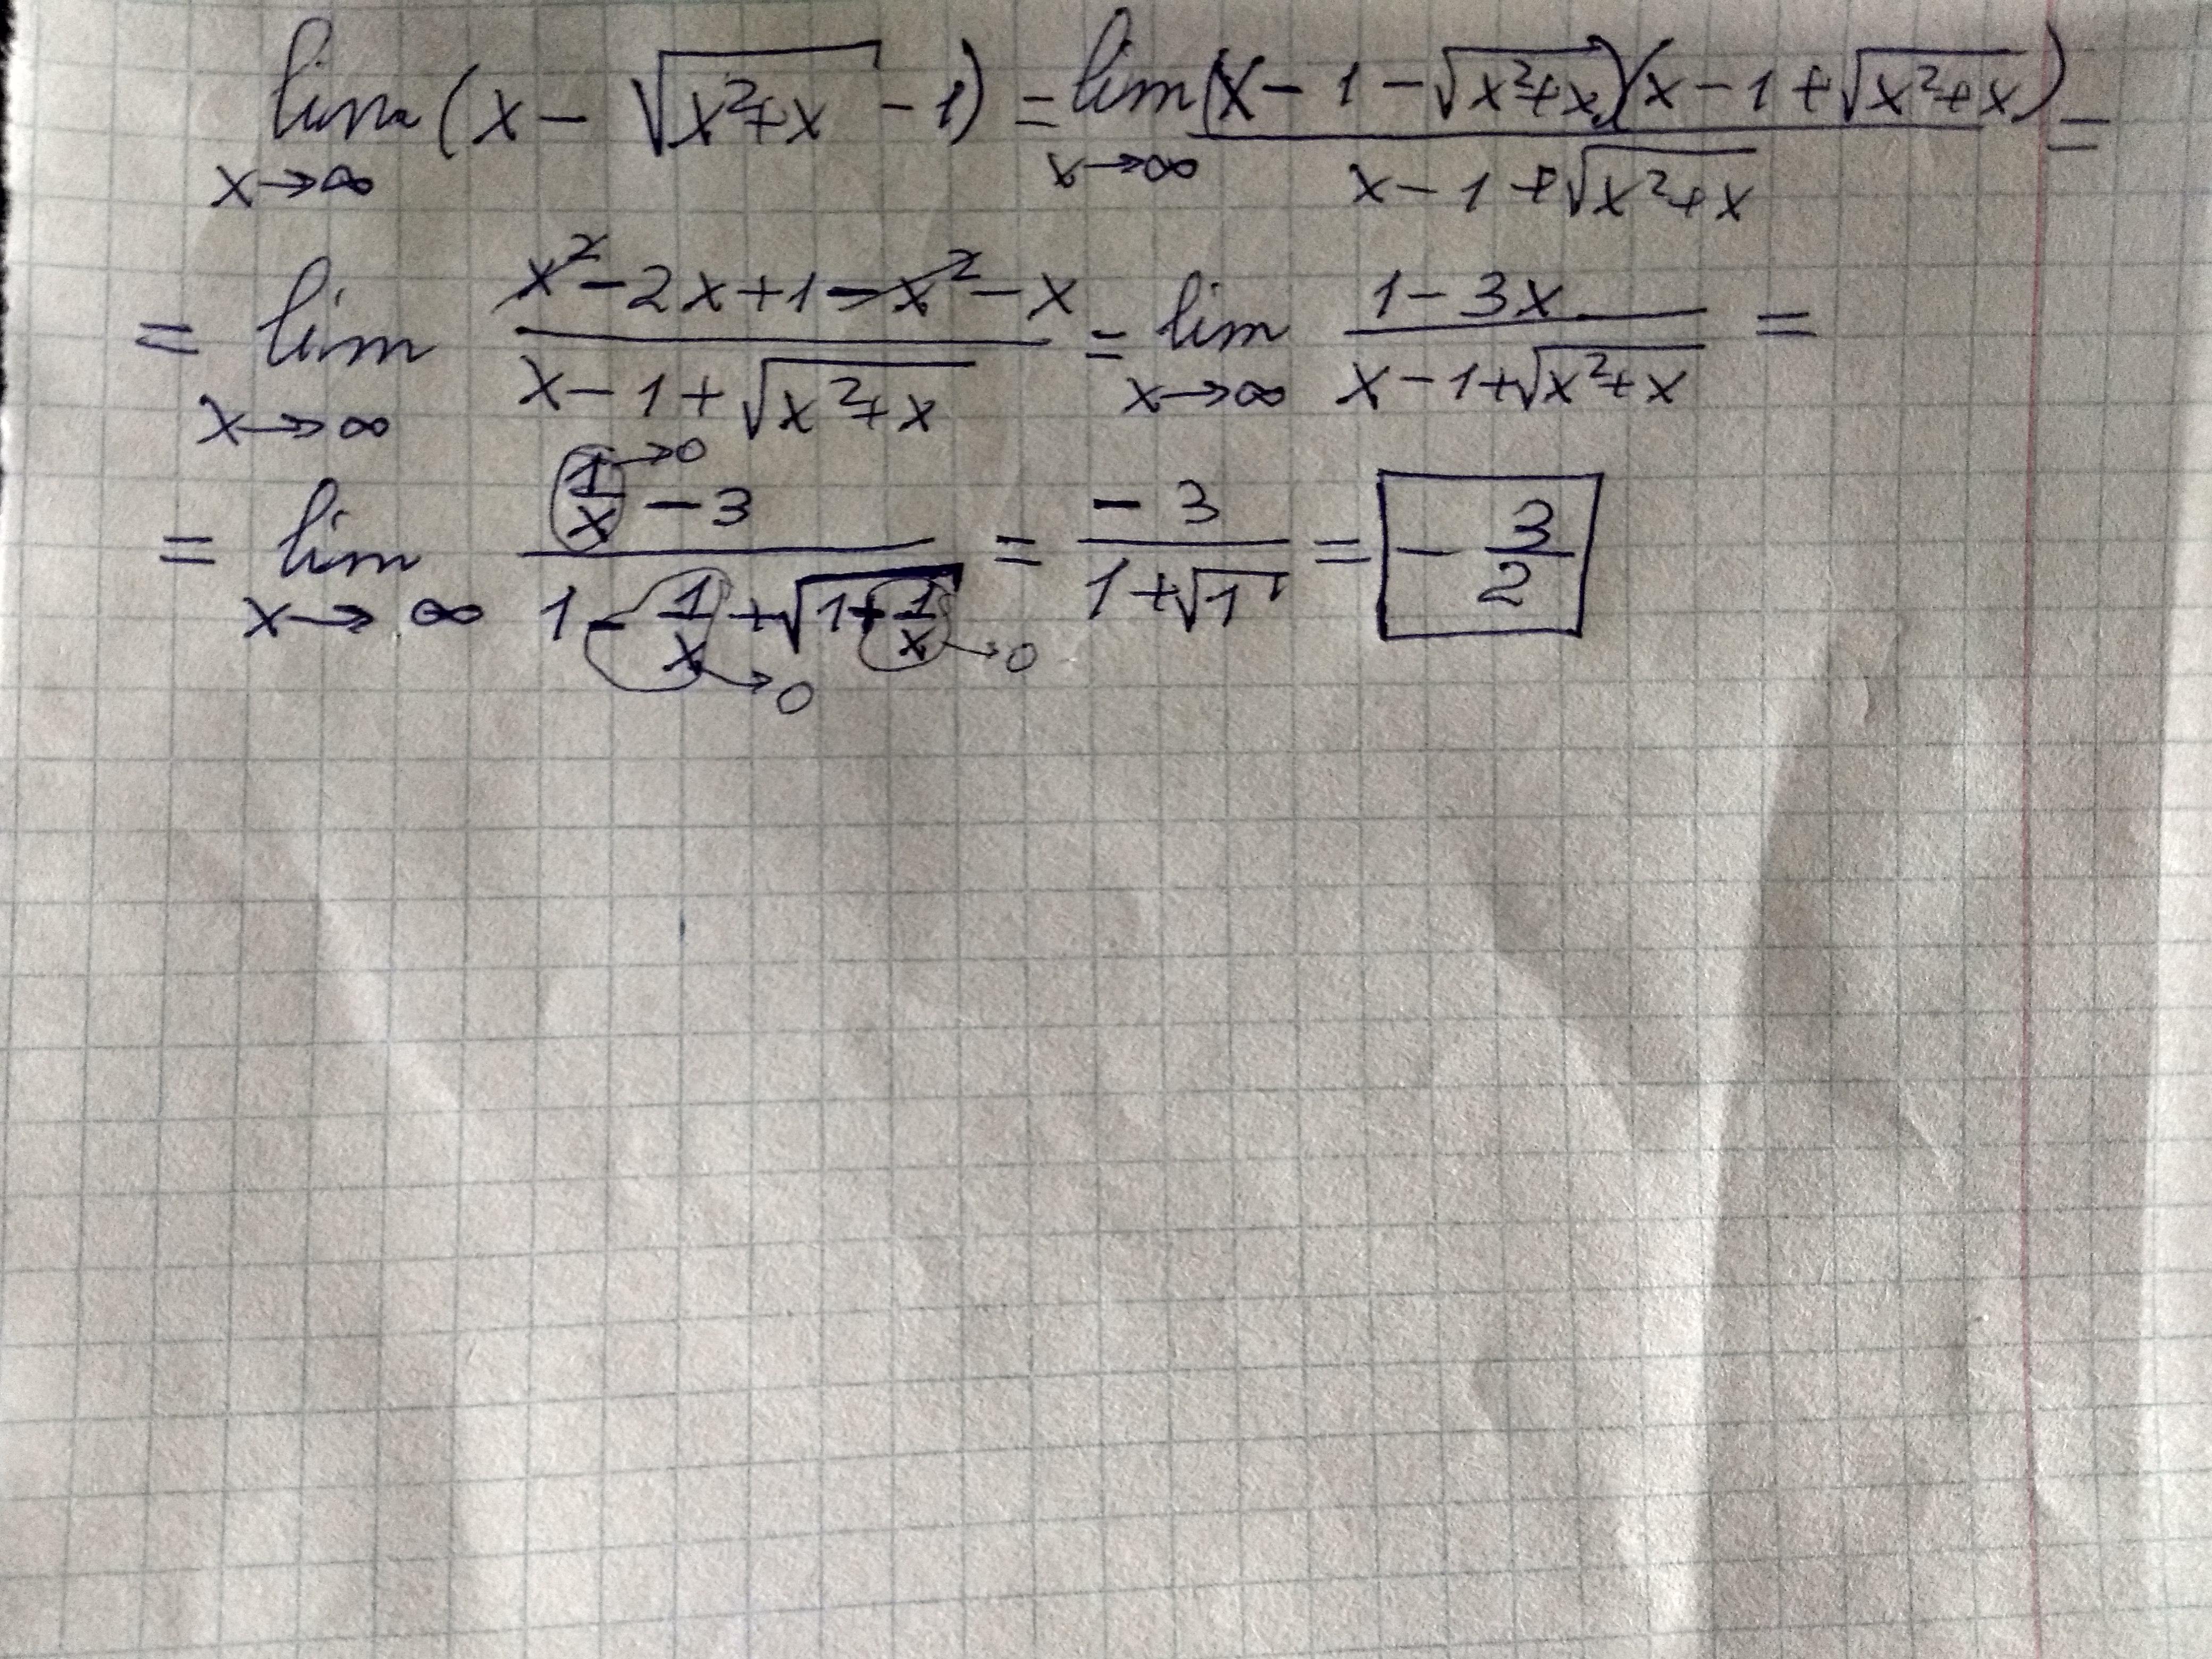 lim x→∞ (x - √(x²+x) - 1) = lim x→∞ ((x - 1 - √(x²+x))(x - 1 + √(x²+x)))/(x - 1 + √(x²+x)) =
= lim x→∞ (x² - 2x + 1 - x² - x)/(x - 1 + √(x²+x)) = lim x→∞ (1 - 3x)/(x - 1 + √(x²+x)) =
= lim x→∞ (1/x →0 - 3)/(1 - 1/x →0 + √(1 + 1/x →0)) = -3/(1 + √1) = -3/2